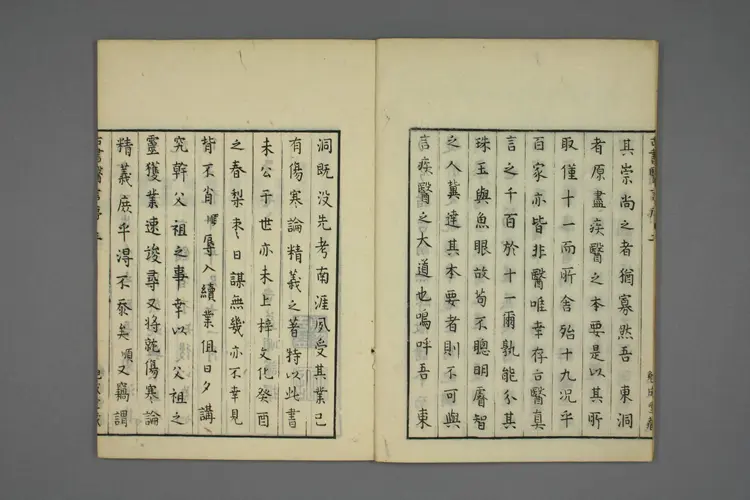 其崇尚之者猶寡然吾 東洞
者原盡疾醫之本要是以其所
取僅十一而所舍殆十九况乎
百家亦皆非醫唯幸存古醫真
言之千百於十一爾孰能分其
珠玉與魚眼故苟不聰明睿智
之人冀達其本要者則不可與
言疾醫之大道也嗚呼吾 東
洞既没先考南涯夙受其業已
有傷寒論精義之著特以此書
未公于世亦未上梓文化癸酉
之春梨棗日謀無幾亦不幸見
背不省順辱入續業俱日夕講
究幹父祖之事幸以父祖之
靈獲業速竣尋又将就傷寒論
精義庶乎得不忝矣順又竊謂
古書醫言序 二